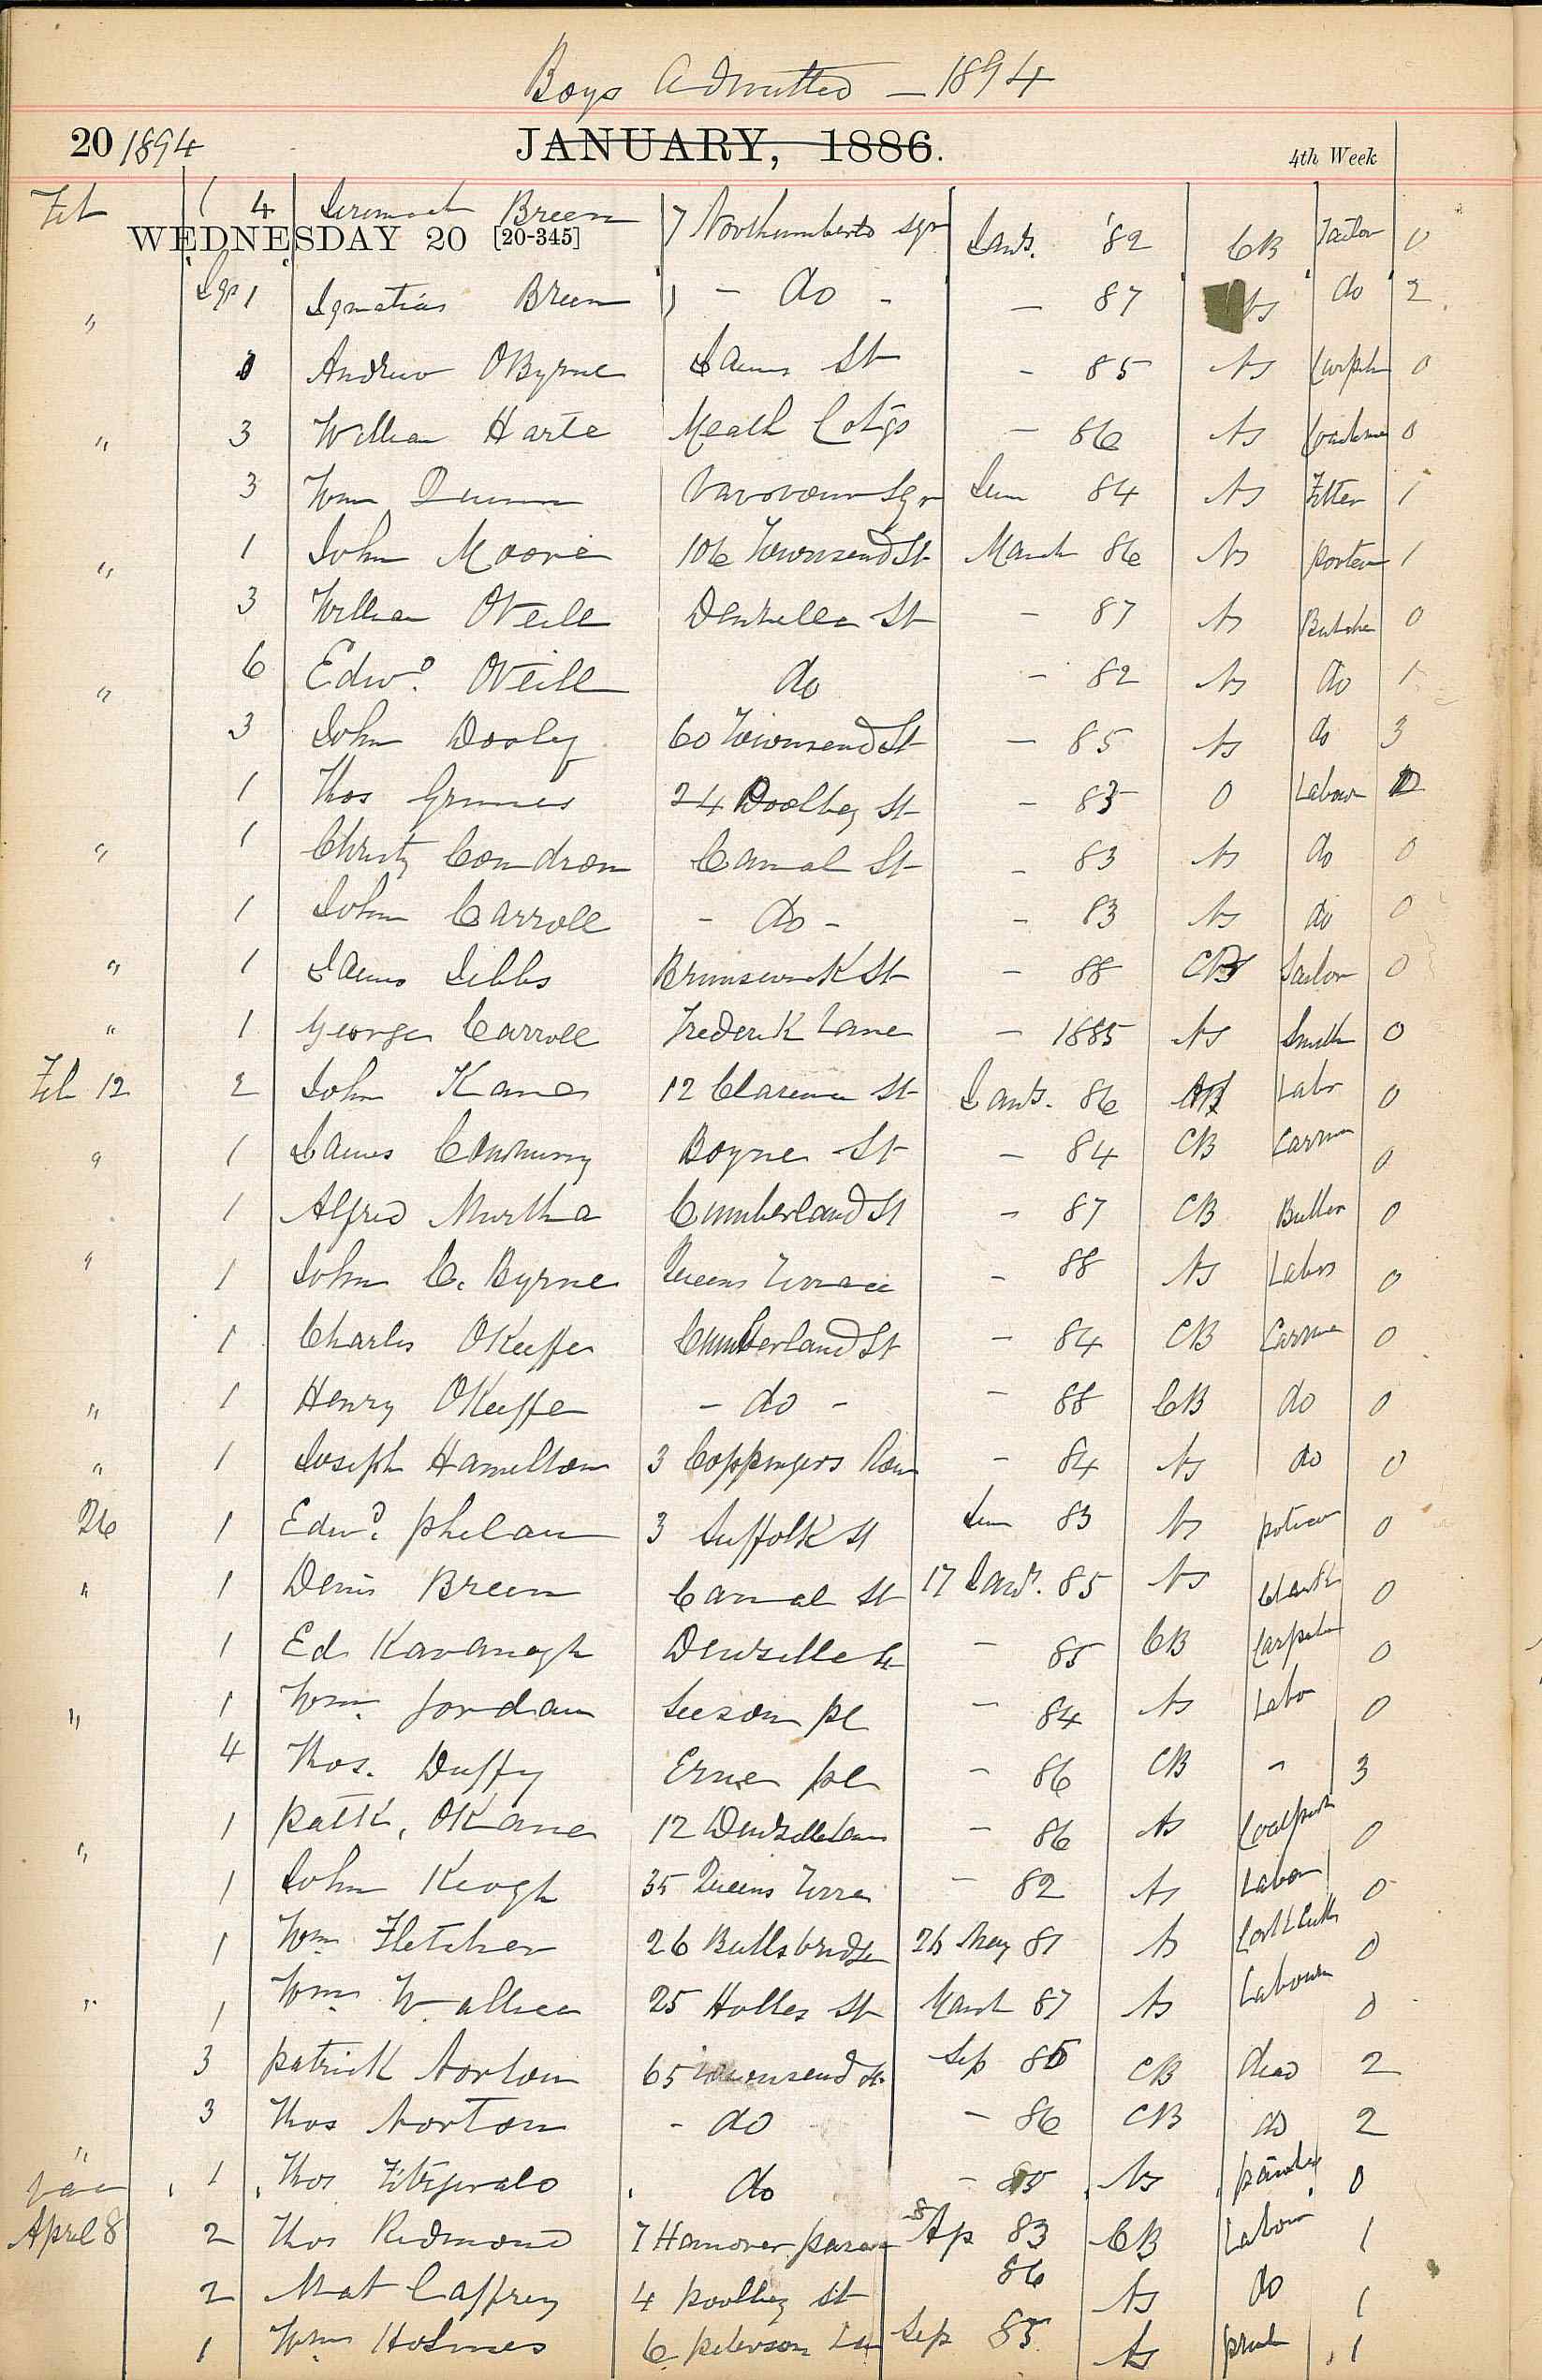 Boys Admitted — 1894
20 1894 JANUARY, 1886. 4th Week
Feb 1 4 Jeremiah Breen 7 Northumberld sqr Jany. '82 CB Tailor 0
WEDNESDAY 20 [20-345]
" 1 Ignatius Breen - do - — 87 Ns do 2
Andrew OByrne James St - 85 Ns Carptr 0
" 3 William Harte Meath Cotgs - 86 Ns Coachman 0
3 Wm Quinn Navorour Sqr Jun 84 Ns Fitter 1
" 1 John Moore 106 Townsend St March 86 Ns porter 1
3 William ONeill Denzille St - 87 Ns Butcher 0
" 6 Edwd ONeill do - 82 Ns do 1
3 John Dooly 60 Townsend St - 85 Ns do 3
1 Thos Grimes 24 Poolbeg St - 83 0 Labour
" 1 Christy Condron Canal St - 83 Ns do 0
1 John Carroll - do - - 83 Ns do 0
" 1 James Gibbs Brunswick St - 88 CB Tailor 0
" 1 George Carroll Frederick Lane - 1885 Ns Smith 0
Feb 12 2 John Kane 12 Clarence St Jany. 86 Labr 0
" 1 James Boyne St - 84 CB Carman 0
1 Alfred Murtha Cumberland St - 87 CB Butler 0
" 1 John C. Byrne Queens Terrace - 88 Ns Labor 0
1 Charles OKeeffe Cumberland St - 84 CB Carman 0
" 1 Henry OKeeffe - do - - 88 CB do 0
" 1 Joseph Hamilton 3 Coppingers Row - 84 Ns do 0
26 1 Edwd. phelan 3 Suffolk St Jun 83 Ns 0
" 1 Denis Breen Canal St 17 Jany. 85 Ns Clerk 0
1 Ed Kavanagh Denzille St - 85 CB Carpetr 0
" 1 Wm. Jordan Leeson pl - 84 Ns Labo 0
4 Thos. Duffy Erne pl - 86 CB - 3
1 patk. OKane 12 Denzille Lane - 86 Ns Coalport 0
" 1 John Keogh 35 Queens Terra - 82 Ns Labor 0
1 Wm Fletcher 26 Ballsbridge 26 May 81 Ns Cork Cutt 0
" 1 Wm Wallace 25 Holles St March 87 Ns Labourer 0
3 patrick Norton 65 Townsend St Sep 85 CB dead 2
3 Thos Norton - do - 86 CB do 2
" 1 Thos Fitzgerald do - 85 Ns 0
April 8 2 Thos Redmond 7 Hanover parade 8 Ap 83 CB Labour 1
2 Mat Caffrey 4 poolbeg st 86 Ns do 1
1 Wm Holmes 6 peterson Lan Sep 85 Ns 1